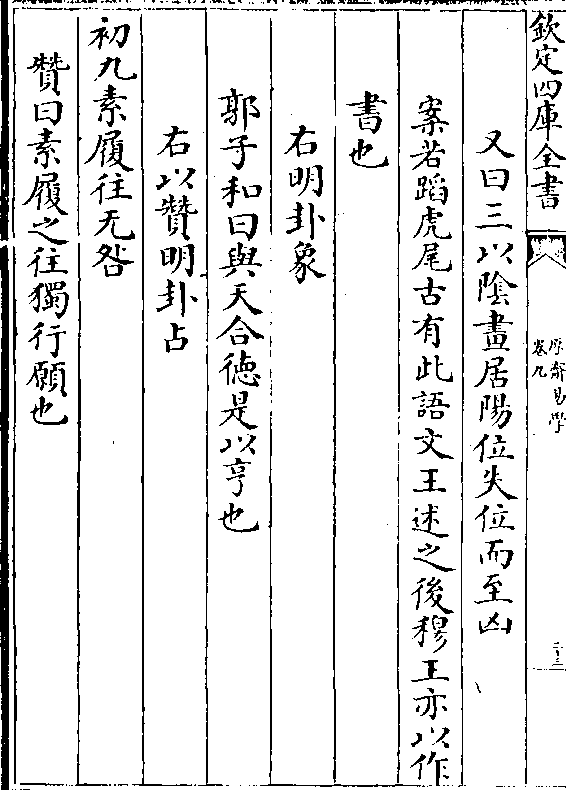 欽定四庫全書
厚齋易學
卷九
二十三
又曰三以陰畫居陽位失位而至凶
案若蹈虎尾古有此語文王述之後穆王亦以作
書也
右明卦象
郭子和曰與天合德是以亨也
右以贊明卦占
初九素履往无咎
贊曰素履之往獨行願也